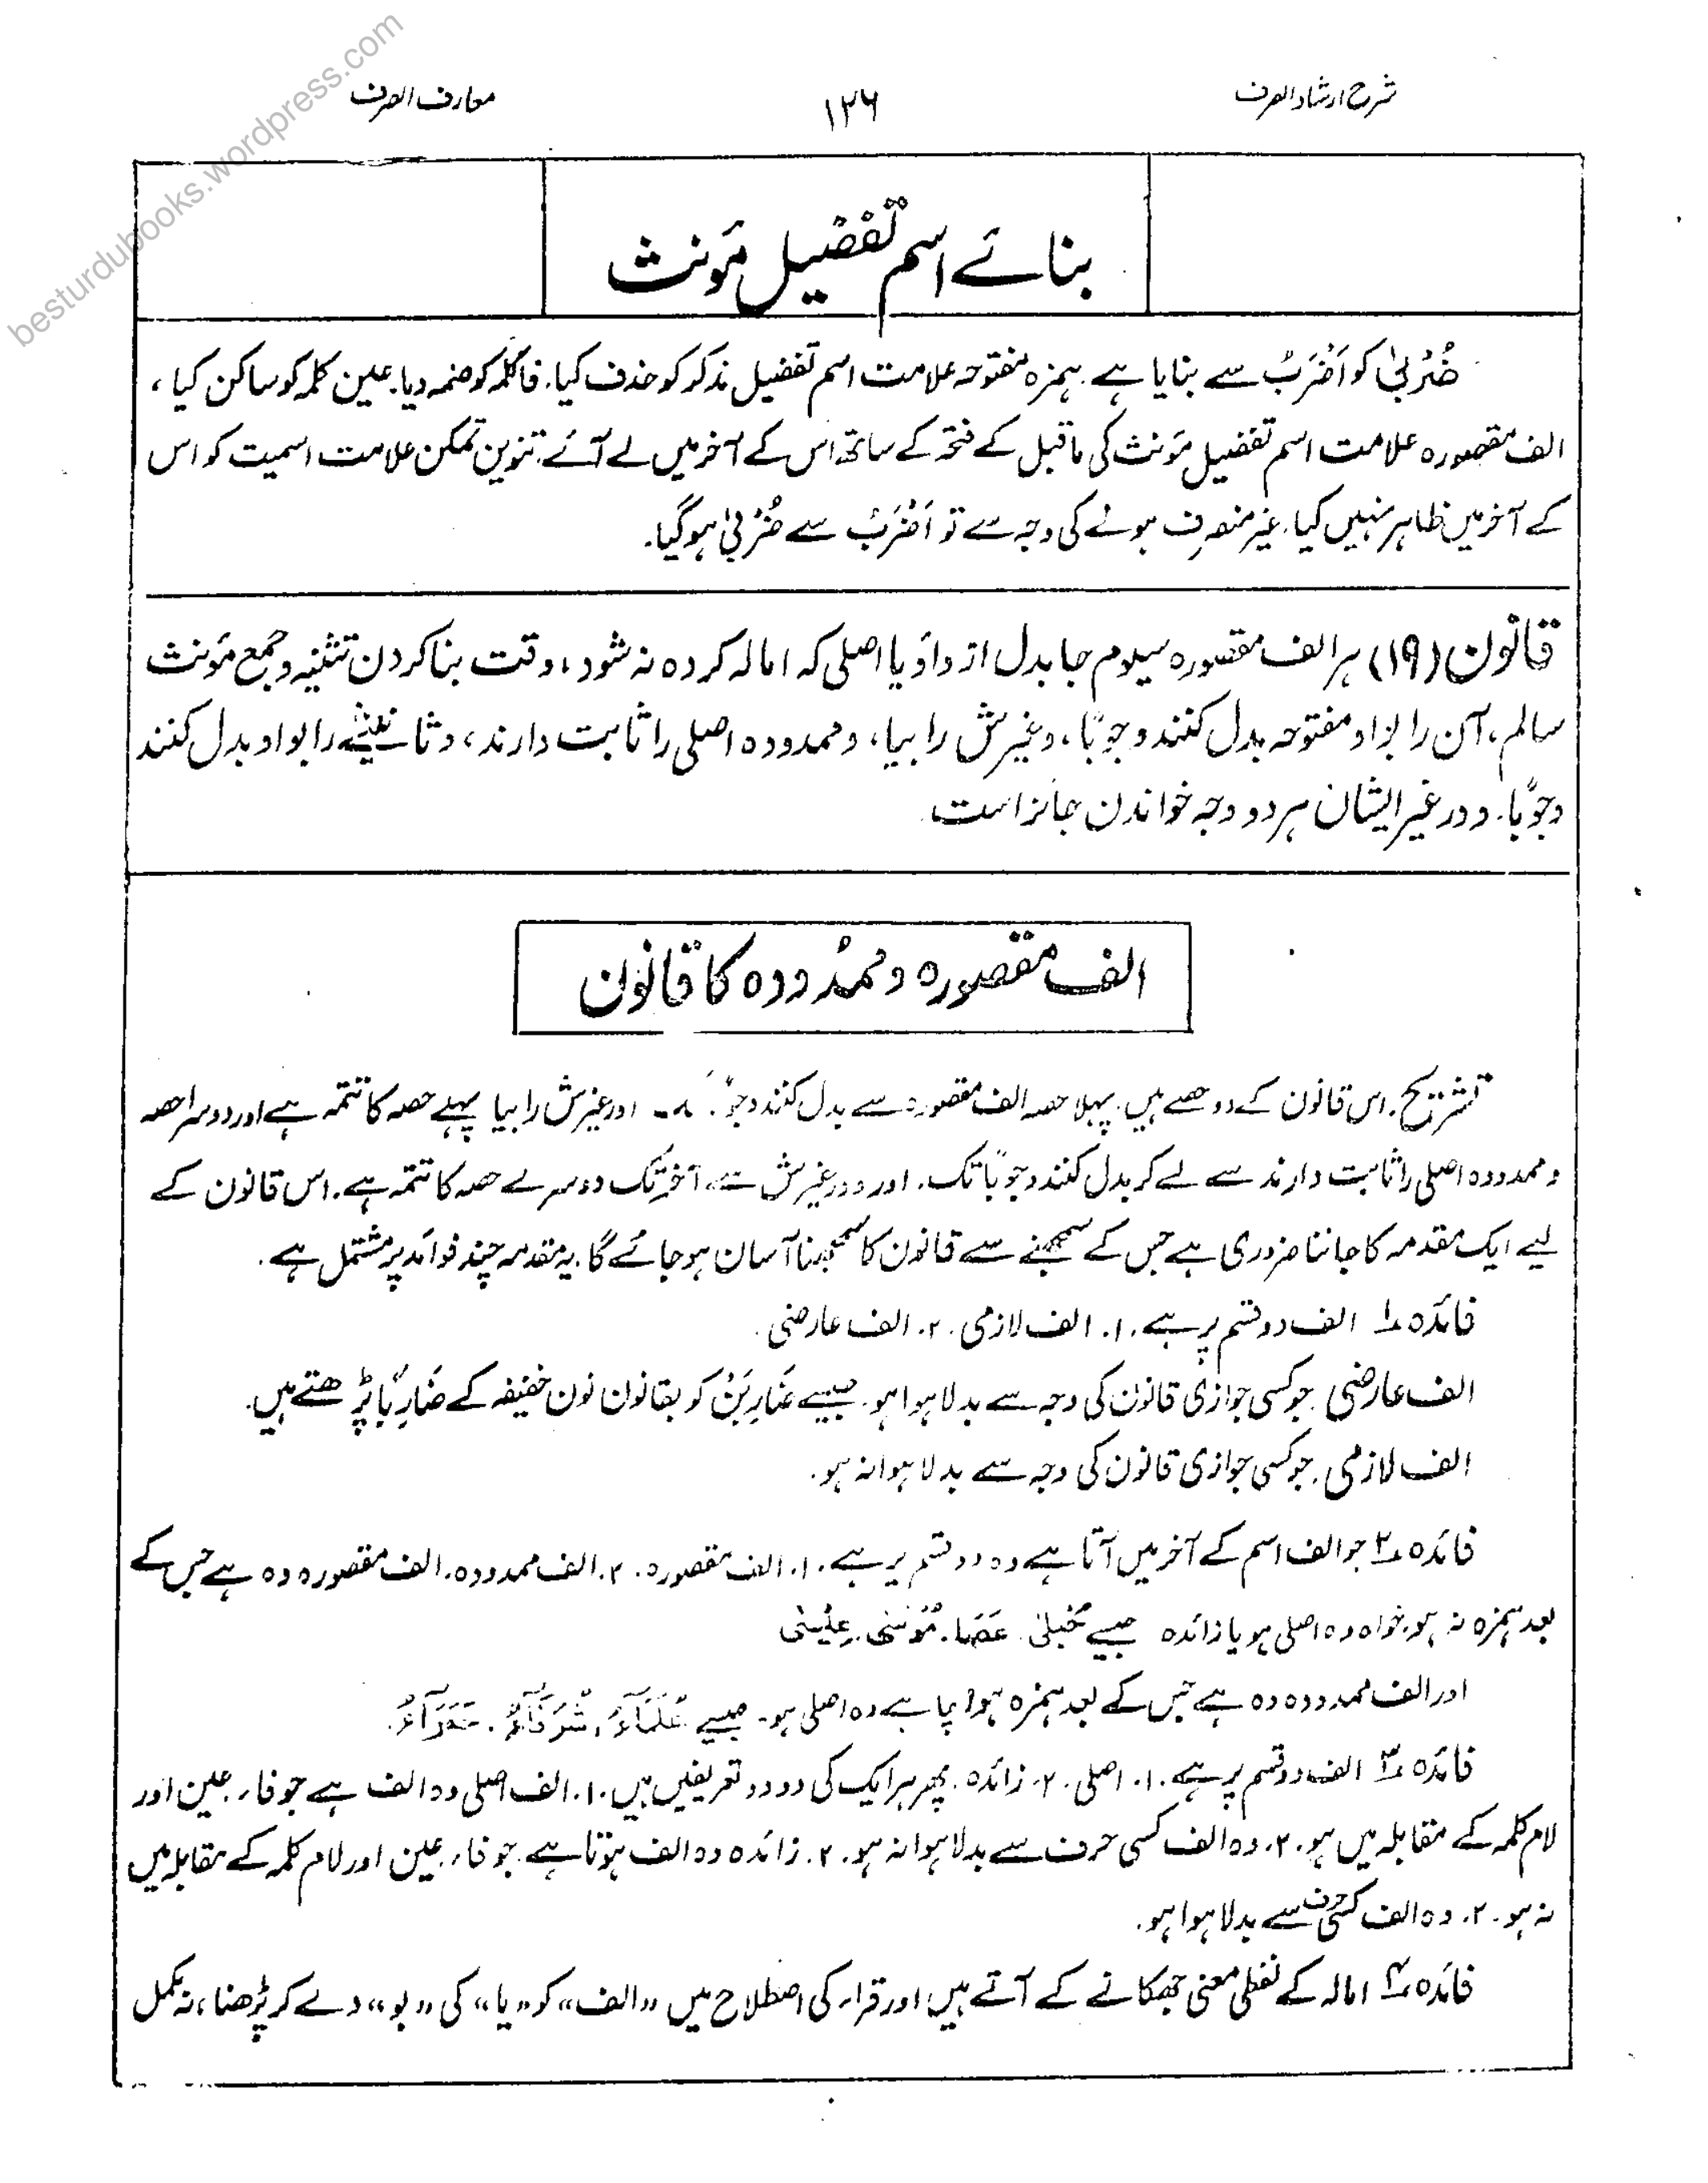 besturdubooks.wordpress.com
شرح ارشاد الصرف
۱۲۶
معارف الصرف
بنائے اسم تفضیل مؤنث
ضُرْبیٰ کو اَضْرَبُ سے بنایا ہے۔ ہمزہ مفتوحہ علامت اسم تفضیل مذکر کو حذف کیا۔ فا کلمہ کو ضمہ دیا۔ عین کلمہ کو ساکن کیا،
الف مقصورہ علامت اسم تفضیل مؤنث کی ماقبل کے فتحہ کے ساتھ اس کے آخر میں لے آئے۔ تنوین تمکن علامت اسمیت کو اس
کے آخر میں ظاہر نہیں کیا۔ غیر منصرف ہونے کی وجہ سے تو اَضْرَبُ سے ضُرْبیٰ ہو گیا۔
قانون (۱۹) ہر الف مقصورہ سیوم جا بدل از واؤ یا اصلی کہ امالہ کردہ نہ شود، وقت بنا کردن تثنیہ و جمع مؤنث
سالم، آن را بواو مفتوحہ بدل کنند وجوبًا، وغیرش را بیا، و ممدودہ اصلی را ثابت دارند، و تانیثی را بواو بدل کنند
وجوبًا۔ و در غیر ایشان ہر دو وجہ خواندن جائز است
الف مقصورہ و ممدودہ کا قانون
تشریح۔ اس قانون کے دو حصے ہیں۔ پہلا حصہ الف مقصورہ سے بدل کنند وجوبًا اور غیرش را بیا پہلے حصہ کا تتمہ ہے اور دوسرا حصہ
و ممدودہ اصلی را ثابت دارند سے لے کر بدل کنند وجوبًا تک۔ اور در غیرش سے آخر تک دوسرے حصہ کا تتمہ ہے۔ اس قانون کے
لیے ایک مقدمہ کا جاننا ضروری ہے جس کے سمجھنے سے قانون کا سمجھنا آسان ہو جائے گا۔ یہ مقدمہ چند فوائد پر مشتمل ہے۔
فائدہ ۱ الف دو قسم پر ہے۔ ۱. الف لازمی ۔ ۲. الف عارضی
الف عارضی۔ جو کسی جوازی قانون کی وجہ سے بدلا ہوا ہو۔ جیسے ضَارِبَنْ کو بقانون نون خفیفہ کے ضَارِبًا پڑھتے ہیں۔
الف لازمی۔ جو کسی جوازی قانون کی وجہ سے بدلا ہوا نہ ہو۔
فائدہ ۲ جو الف اسم کے آخر میں آتا ہے وہ دو قسم پر ہے۔ ۱. الف مقصورہ ۔ ۲. الف ممدودہ۔ الف مقصورہ وہ ہے جس کے
بعد ہمزہ نہ ہو۔ خواہ وہ اصلی ہو یا زائدہ جیسے حُبْلیٰ۔ عَصَا۔ مُوْسٰی۔ عِیْسٰی
اور الف ممدودہ وہ ہے جس کے بعد ہمزہ ہو۔ چاہے وہ اصلی ہو۔ جیسے عُلَمَآءُ، شُرَفَآءُ،
فائدہ ۳ الف دو قسم پر ہے۔ ۱. اصلی ۔ ۲. زائدہ۔ پھر ہر ایک کی دو دو تعریفیں ہیں۔ ۱. الف اصلی وہ الف ہے جو فاء، عین اور
لام کلمہ کے مقابلہ میں ہو۔ ۲. وہ الف کسی حرف سے بدلا ہوا نہ ہو۔ ۲. زائدہ وہ الف ہوتا ہے۔ جو فاء، عین اور لام کلمہ کے مقابلہ میں
نہ ہو۔ ۲. وہ الف کسی حرف سے بدلا ہوا ہو۔
فائدہ ۴ امالہ کے لفظی معنی جھکانے کے آتے ہیں اور قراء کی اصطلاح میں "الف" کو "یا" کی "بو" دے کر پڑھنا، نہ مکمل